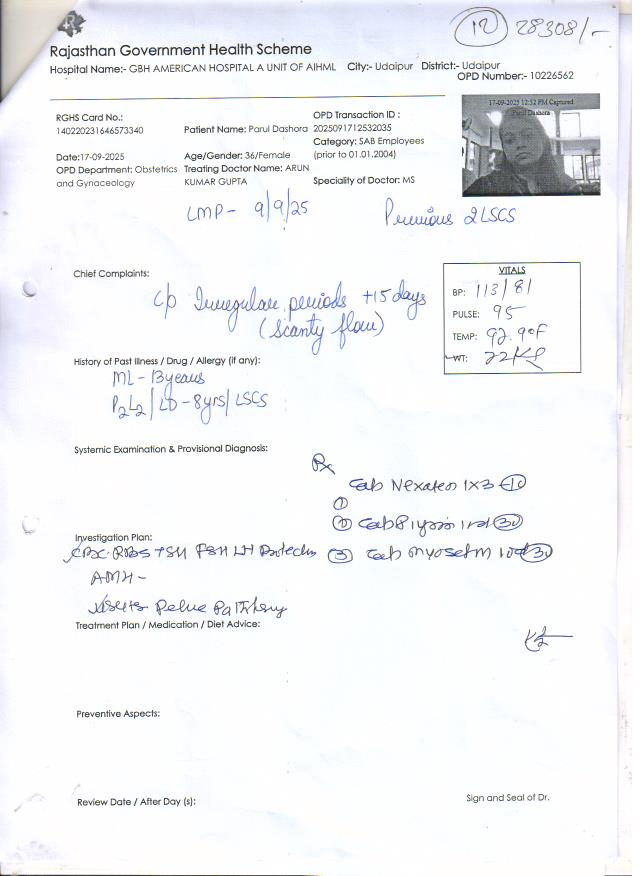 12 28308/-
Rajasthan Government Health Scheme
Hospital Name:- GBH AMERICAN HOSPITAL A UNIT OF AIHML City:- Udaipur District:- Udaipur
OPD Number:- 10226562
17-09-2025 12:52 PM Captured
Parul Dashora
RGHS Card No.:
140220231646573340
Patient Name: Parul Dashora
OPD Transaction ID :
2025091712532035
Category: SAB Employees
(prior to 01.01.2004)
Date:17-09-2025
OPD Department: Obstetrics
and Gynaceology
Age/Gender: 36/Female
Treating Doctor Name: ARUN
KUMAR GUPTA
Speciality of Doctor: MS
LMP- 9/9/25
Previous 2LSCS
Chief Complaints:
c/o Irregular periods +15 days
(Scanty flow)
VITALS
BP: 113/81
PULSE: 95
TEMP:
WT:
History of Past Illness / Drug / Allergy (if any):
ML- 13years
P2L2/LD-8yrs/LSCS
Systemic Examination & Provisional Diagnosis:
Rx
Tab 1x3
Investigation Plan:
CBC RBS TSH FSH LH
AMH-
Pelvic
Treatment Plan / Medication / Diet Advice:
Preventive Aspects:
Review Date / After Day (s):
Sign and Seal of Dr.